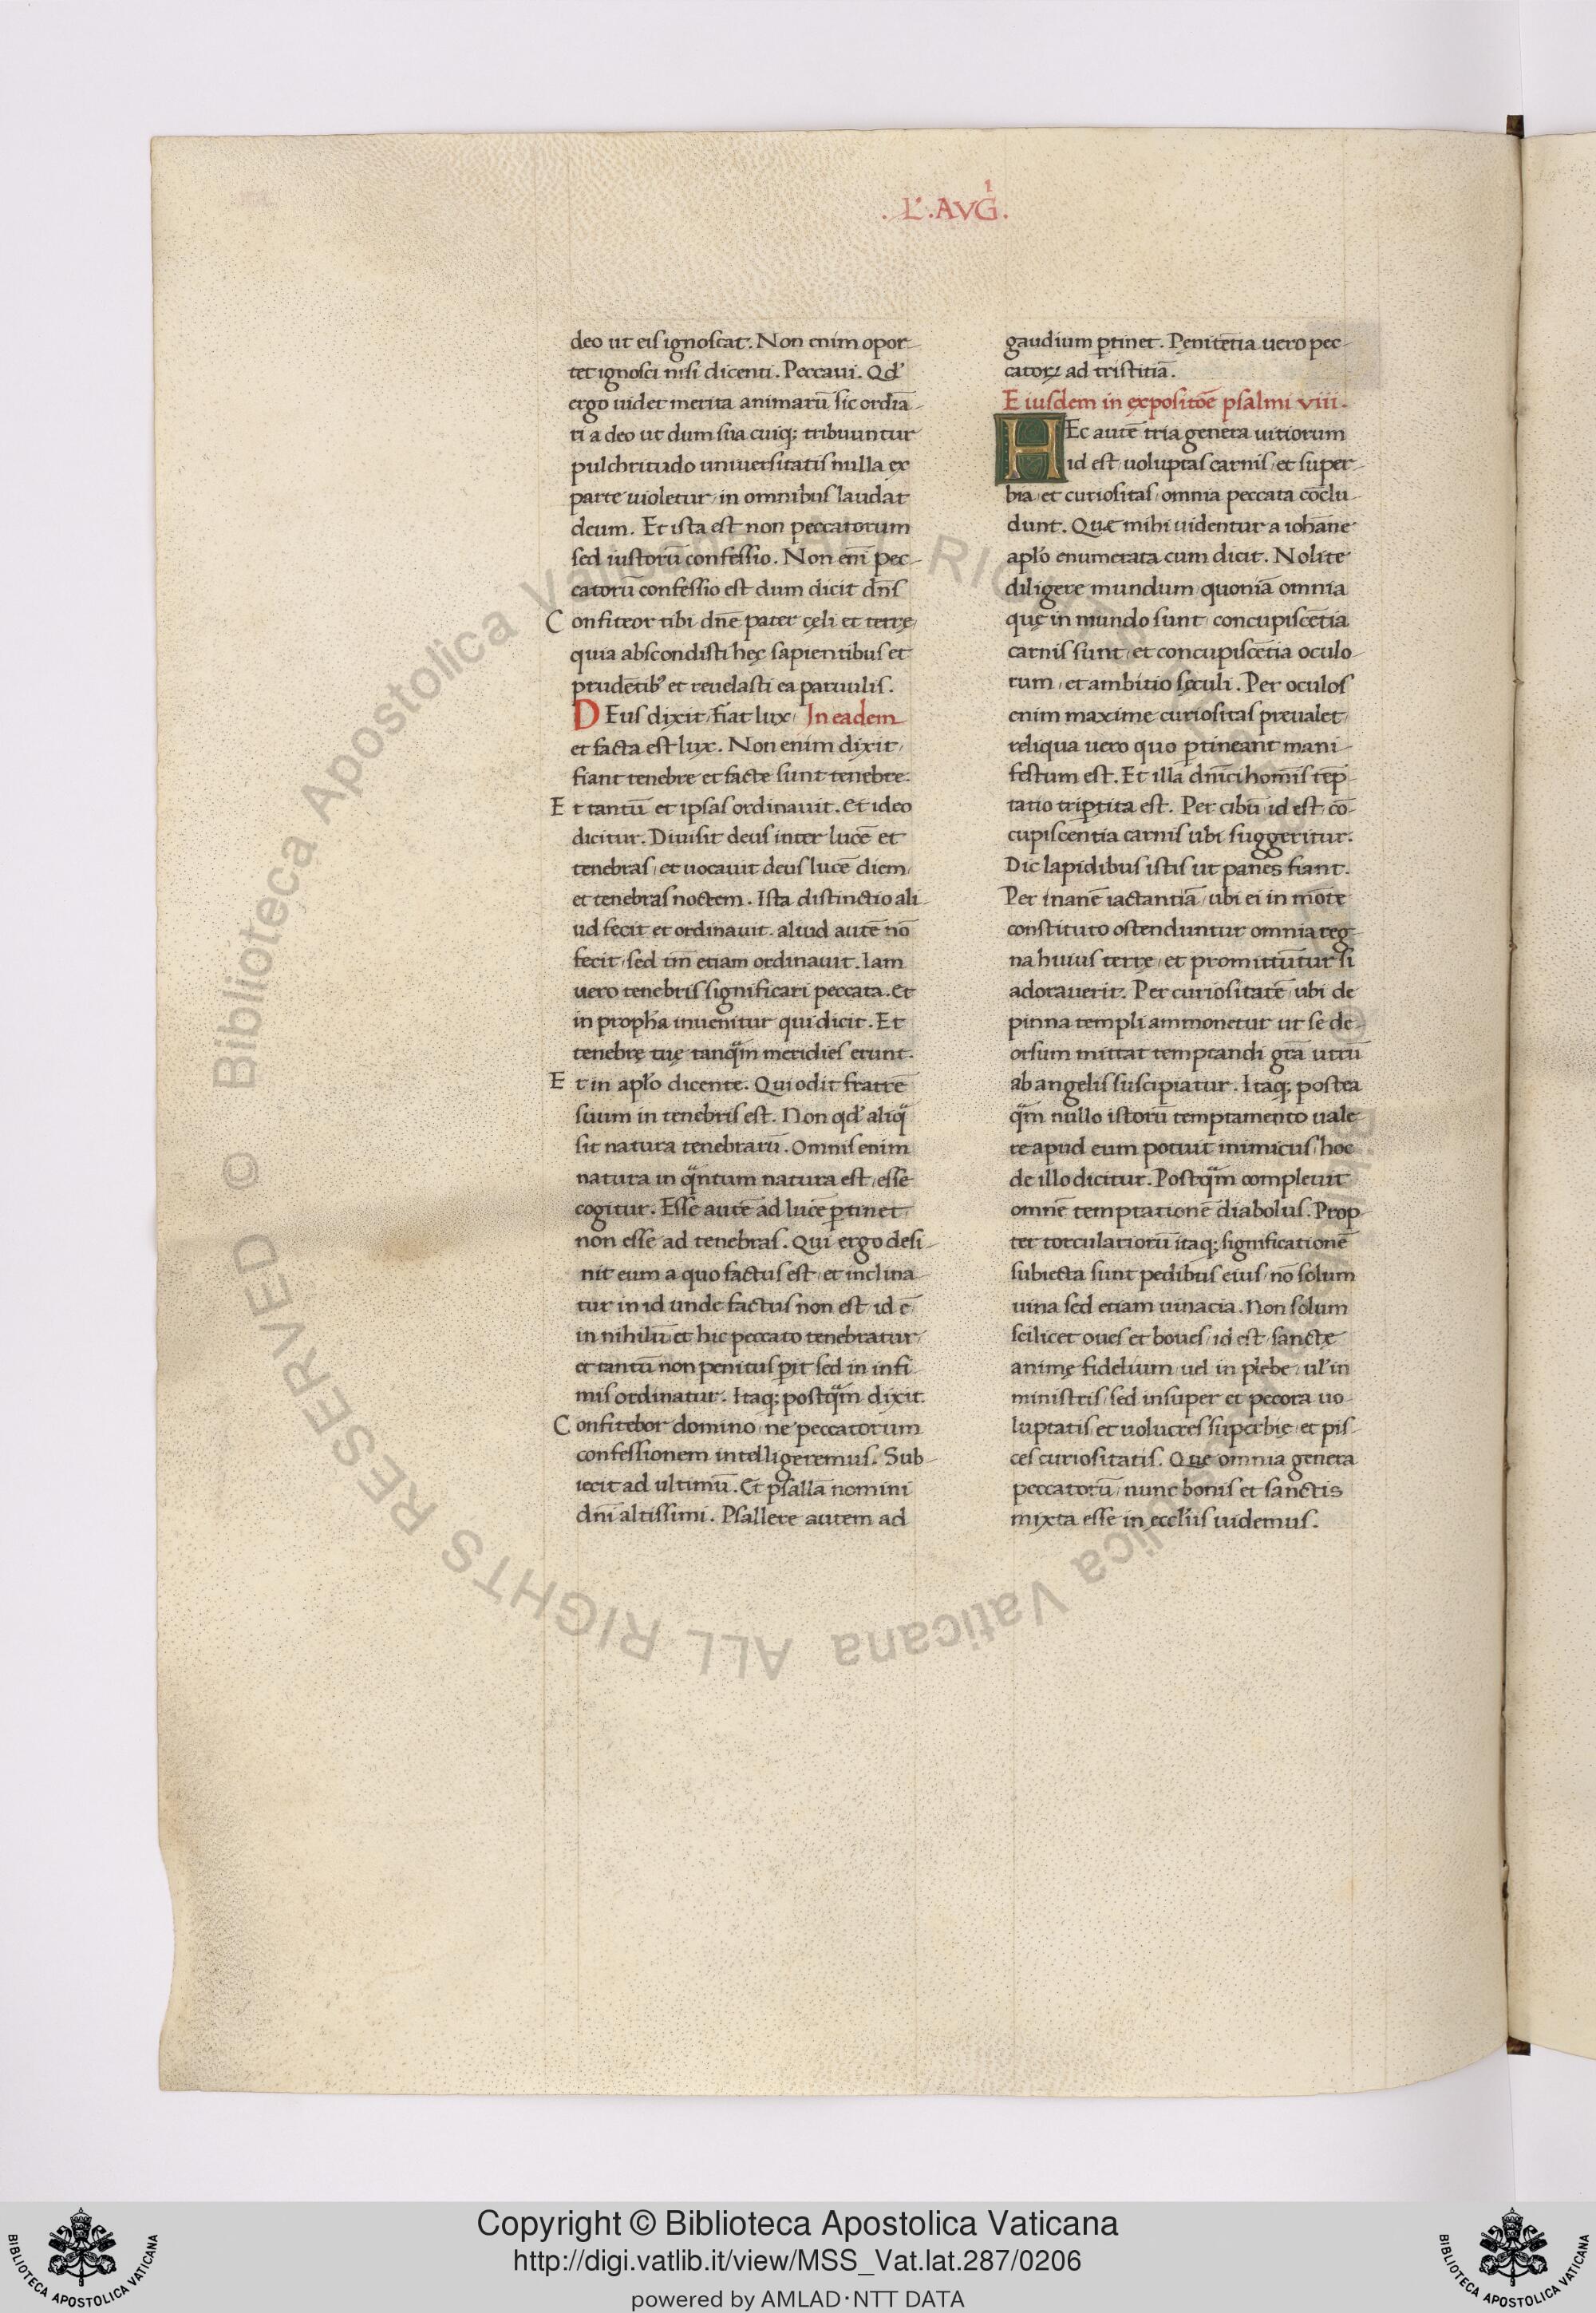 . L'. AVGⁱ.
deo ut eiſ ignoſcat. Non enim opor-
tet ignoſci niſi dicenti. Peccaui. Qd'
ergo uidet merita animarū ſic ordīa-
ri a deo ut dum ſua cuiq; tribuuntur
pulchritudo uniuerſitatiſ nulla ex
parte uioletur, in omnibuſ laudat
deum. Et iſta eſt non peccatorum
ſed iuſtorū confeſſio. Non enī pec-
catorū confeſſio eſt dum dicit dn̄ſ
Confiteor tibi dn̄e pater cęli et terrę,
quia abſcondiſti hęc ſapientibuſ et
prudētib' et reuelaſti ea paruuliſ.
DEuſ dixit, fiat lux, In eadem
et facta eſt lux. Non enim dixit,
fiant tenebre et facte ſunt tenebre.
Et tantū et ipſaſ ordinauit. Et ideo
dicitur. Diuiſit deuſ inter lucē et
tenebraſ, et uocauit deuſ lucē diem,
et tenebraſ noctem. Iſta diſtinctio ali-
ud fecit et ordinauit. aliud autē nō
fecit, ſed tm̄ etiam ordinauit. Iam
uero tenebriſ ſignificari peccata. Et
in proph'a inuenitur qui dicit. Et
tenebrę tuę tanqᵃ̄m meridieſ erunt.
Et in apl'o dicente. Qui odit fratrē
ſuum in tenebriſ eſt. Non qd' aliqᵃ
ſit natura tenebrarū. Omniſ enim
natura in qᵃntum natura eſt, eſſe
cogitur. Eſſe autē ad lucē ꝑtinet,
non eſſe ad tenebraſ. Qui ergo deſi-
nit eum a quo factuſ eſt, et inclina-
tur in id unde factuſ non eſt, id ē,
in nihilū, et hic peccato tenebratur,
et tantū non penituſ ꝑit ſed in infi-
miſ ordinatur. Itaq; poſtqᵃ̄m dixit.
Confitebor domino, ne peccatorum
confeſſionem intelligeremuſ. Sub-
iecit ad ultimū. Et pſallā nomini
dn̄i altiſſimi. Pſallere autem ad
gaudium ꝑtinet. Penitētia uero pec-
catorꝝ ad triſtitiā.
Eiuſdem in expoſitōe pſalmi viii.
HEc autē tria genera uitiorum
id eſt, uoluptaſ carniſ, et ſuper-
bia, et curioſitaſ, omnia peccata cōclu-
dunt. Quæ mihi uidentur a iohāne
apl'o enumerata cum dicit. Nolite
diligere mundum, quoniā omnia
quę in mundo ſunt, concupiſcētia
carniſ ſunt, et concupiſcētia oculo-
rum, et ambitio ſęculi. Per oculoſ
enim maxime curioſitaſ preualet,
reliqua uero quo ꝑtineant mani-
feſtum eſt. Et illa dn̄ici homīſ tēp-
tatio triꝑtita eſt. Per cibū, id eſt, cō-
cupiſcentia carniſ ubi ſuggeritur.
Dic lapidibuſ iſtiſ ut panes fiant.
Per inanē iactantiā, ubi ei in mōte
conſtituto oſtenduntur omnia reg-
na huiuſ terrę, et promittūtur ſi
adorauerit. Per curioſitatē, ubi de
pinna templi ammonetur ut ſe de-
orſum mittat temptandi gr̄a utrū
ab angeliſ ſuſcipiatur. Itaq; poſtea
qᵃ̄m nullo iſtorū temptamento uale-
re apud eum potuit inimicuſ, hoc
de illo dicitur. Poſtqᵃ̄m compleuit
omnē temptationē diabolus. Prop-
ter torculariorū itaq; ſignificationē
ſubiecta ſunt pedibuſ eiuſ, nō ſolum
uina ſed etiam uinacia. Non ſolum
ſcilicet oueſ et boueſ, id eſt, ſanctę
animę fidelium, uel in plebe, ul' in
miniſtriſ, ſed inſuper et pecora uo-
luptatiſ, et uolucreſ ſuperbie, et piſ-
ceſ curioſitatiſ. Que omnia genera
peccatorū, nunc boniſ et ſanctis
mixta eſſe in eccl'iſ uidemuſ.
© Biblioteca Apostolica Vaticana ALL RIGHTS RESERVED
Copyright © Biblioteca Apostolica Vaticana
http://digi.vatlib.it/view/MSS_Vat.lat.287/0206
powered by AMLAD･NTT DATA
BIBLIOTECA APOSTOLICA VATICANA
BIBLIOTECA APOSTOLICA VATICANA